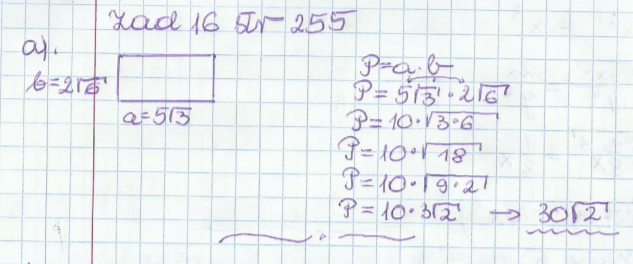 zad 16 str 255
a).
b=2√6
a=5√3
P=a·b
P=5√3·2√6
P=10·√3·6
P=10·√18
P=10·√9·2
P=10·3√2 → 30√2